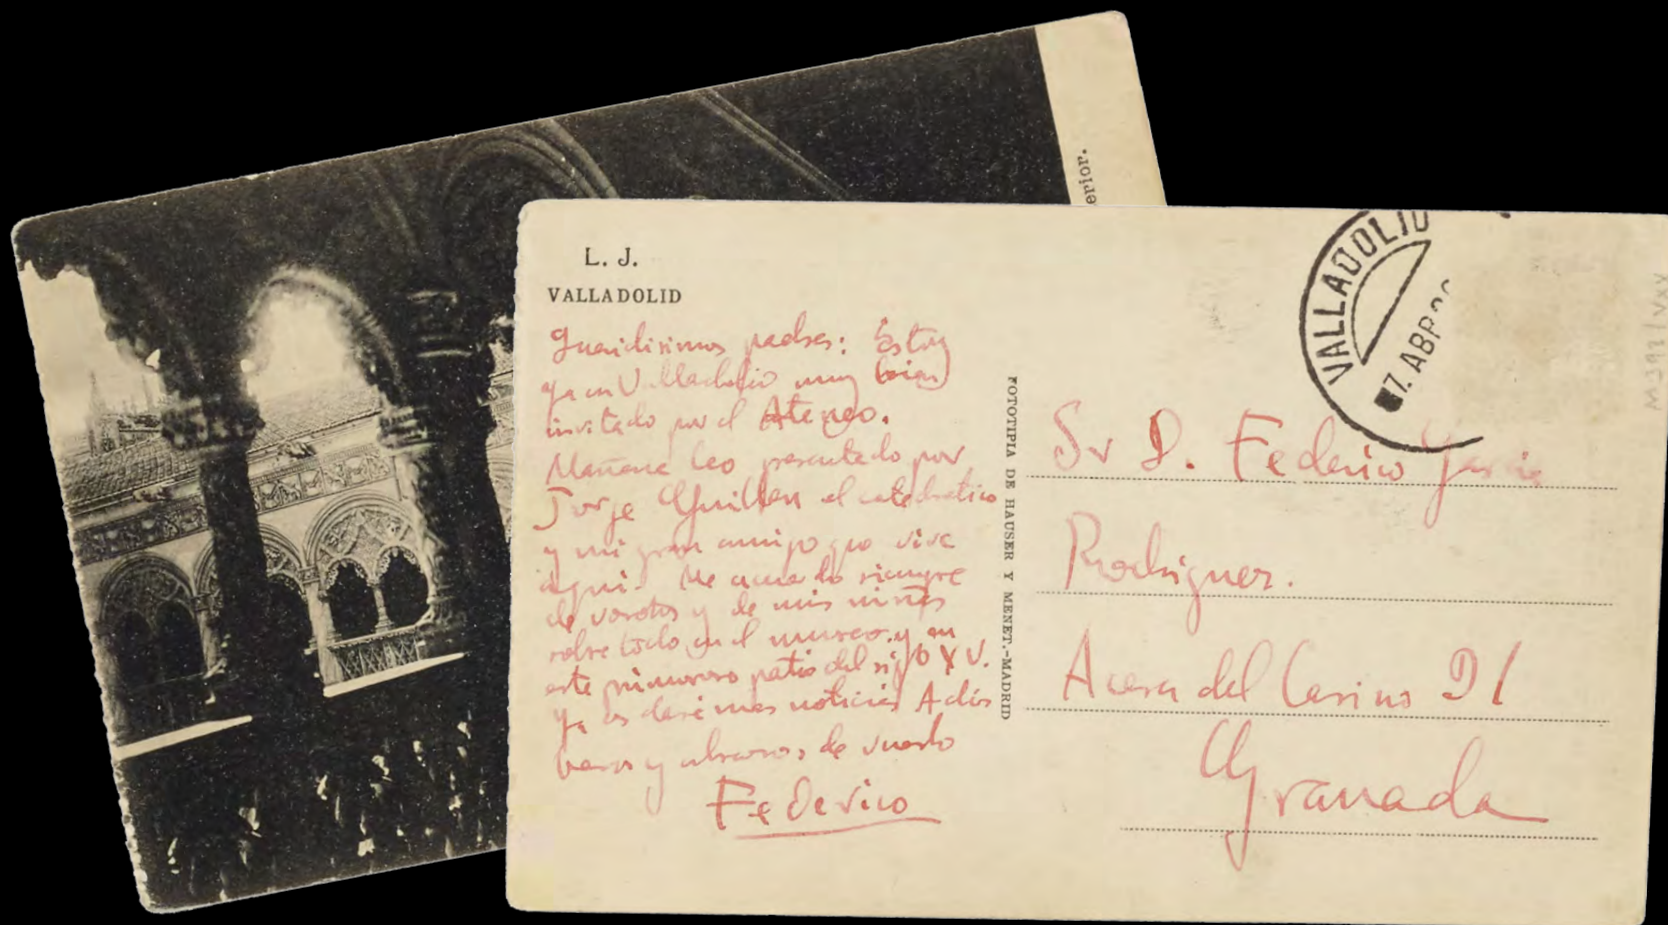 erior.
L. J.
VALLADOLID
Queridisimos padres: Estoy
ya en Valladolid muy bien
invitado por el Ateneo.
Mañana leo presentado por
Jorge Guillen el catedratico
y mi gran amigo que vive
aqui. Me acuerdo siempre
de vosotros y de mis niñas
sobre todo en el museo y en
este primoroso patio del siglo XV.
Ya os daré mas noticias Adios
besos y abrazos de vuestro
Federico
FOTOTIPIA DE HAUSER Y MENET.-MADRID
VALLADOLID
7. ABR
Sr D. Federico Garcia
Rodriguez.
Acera del Casino 31
Granada